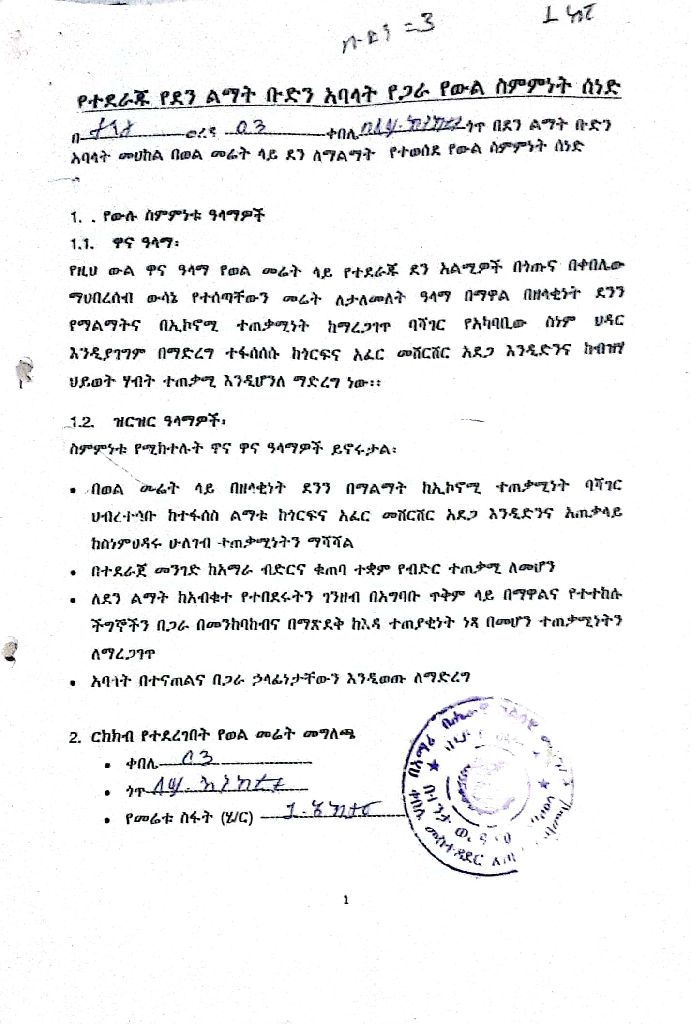 ቡድን = 3
የተደራጁ የደን ልማት ቡድን አባላት የጋራ የውል ስምምነት ሰነድ
በ ወረዳ 03 ቀበሌ ጎጥ በደን ልማት ቡድን
አባላት መሀከል በወል መሬት ላይ ደን ለማልማት የተወሰደ የውል ስምምነት ሰነድ
1. . የውሉ ስምምነቱ ዓላማዎች
1.1. ዋና ዓላማ፡
የዚህ ውል ዋና ዓላማ የወል መሬት ላይ የተደራጁ ደን አልሚዎች በጎጡና በቀበሌው
ማህበረሰብ ውሳኔ የተሰጣቸውን መሬት ለታለመለት ዓላማ በማዋል በዘላቂነት ደንን
የማልማትና በኢኮኖሚ ተጠቃሚነት ከማረጋገጥ ባሻገር የአካባቢው ስነም ህዳር
እንዲያገግም በማድረግ ተፋሰሰሱ ከጎርፍና አፈር መሸርሸር አደጋ እንዲድንና ከብዝሃ
ህይወት ሃብት ተጠቃሚ እንዲሆንለ ማድረግ ነው፡፡
1.2. ዝርዝር ዓላማዎች፡
ስምምነቱ የሚከተሉት ዋና ዋና ዓላማዎች ይኖሩታል፡
• በወል መሬት ላይ በዘላቂነት ደንን በማልማት ከኢኮኖሚ ተጠቃሚነት ባሻገር
ህብረተሳቡ ከተፋሰስ ልማቱ ከጎርፍና አፈር መሸርሸር አደጋ እንዲድንና አጠቃላይ
ከስነምህዳሩ ሁለገብ ተጠቃሚነትን ማሻሻል
• በተደራጀ መንገድ ከአማራ ብድርና ቁጠባ ተቋም የብድር ተጠቃሚ ለመሆን
• ለደን ልማት ከአብቁተ የተበደሩትን ገንዘብ በአግባቡ ጥቅም ላይ በማዋልና የተተከሉ
ችግኞችን በጋራ በመንከባከብና በማጽደቅ ከእዳ ተጠያቂነት ነጻ በመሆን ተጠቃሚነትን
ለማረጋገጥ
• አባላት በተናጠልና በጋራ ኃላፊነታቸውን እንዲወጡ ለማድረግ
2. ርክክብ የተደረገበት የወል መሬት መግለጫ
• ቀበሌ 03
• ጎጥ
• የመሬቱ ስፋት (ሄ/ር) 1. ሄክታር
1